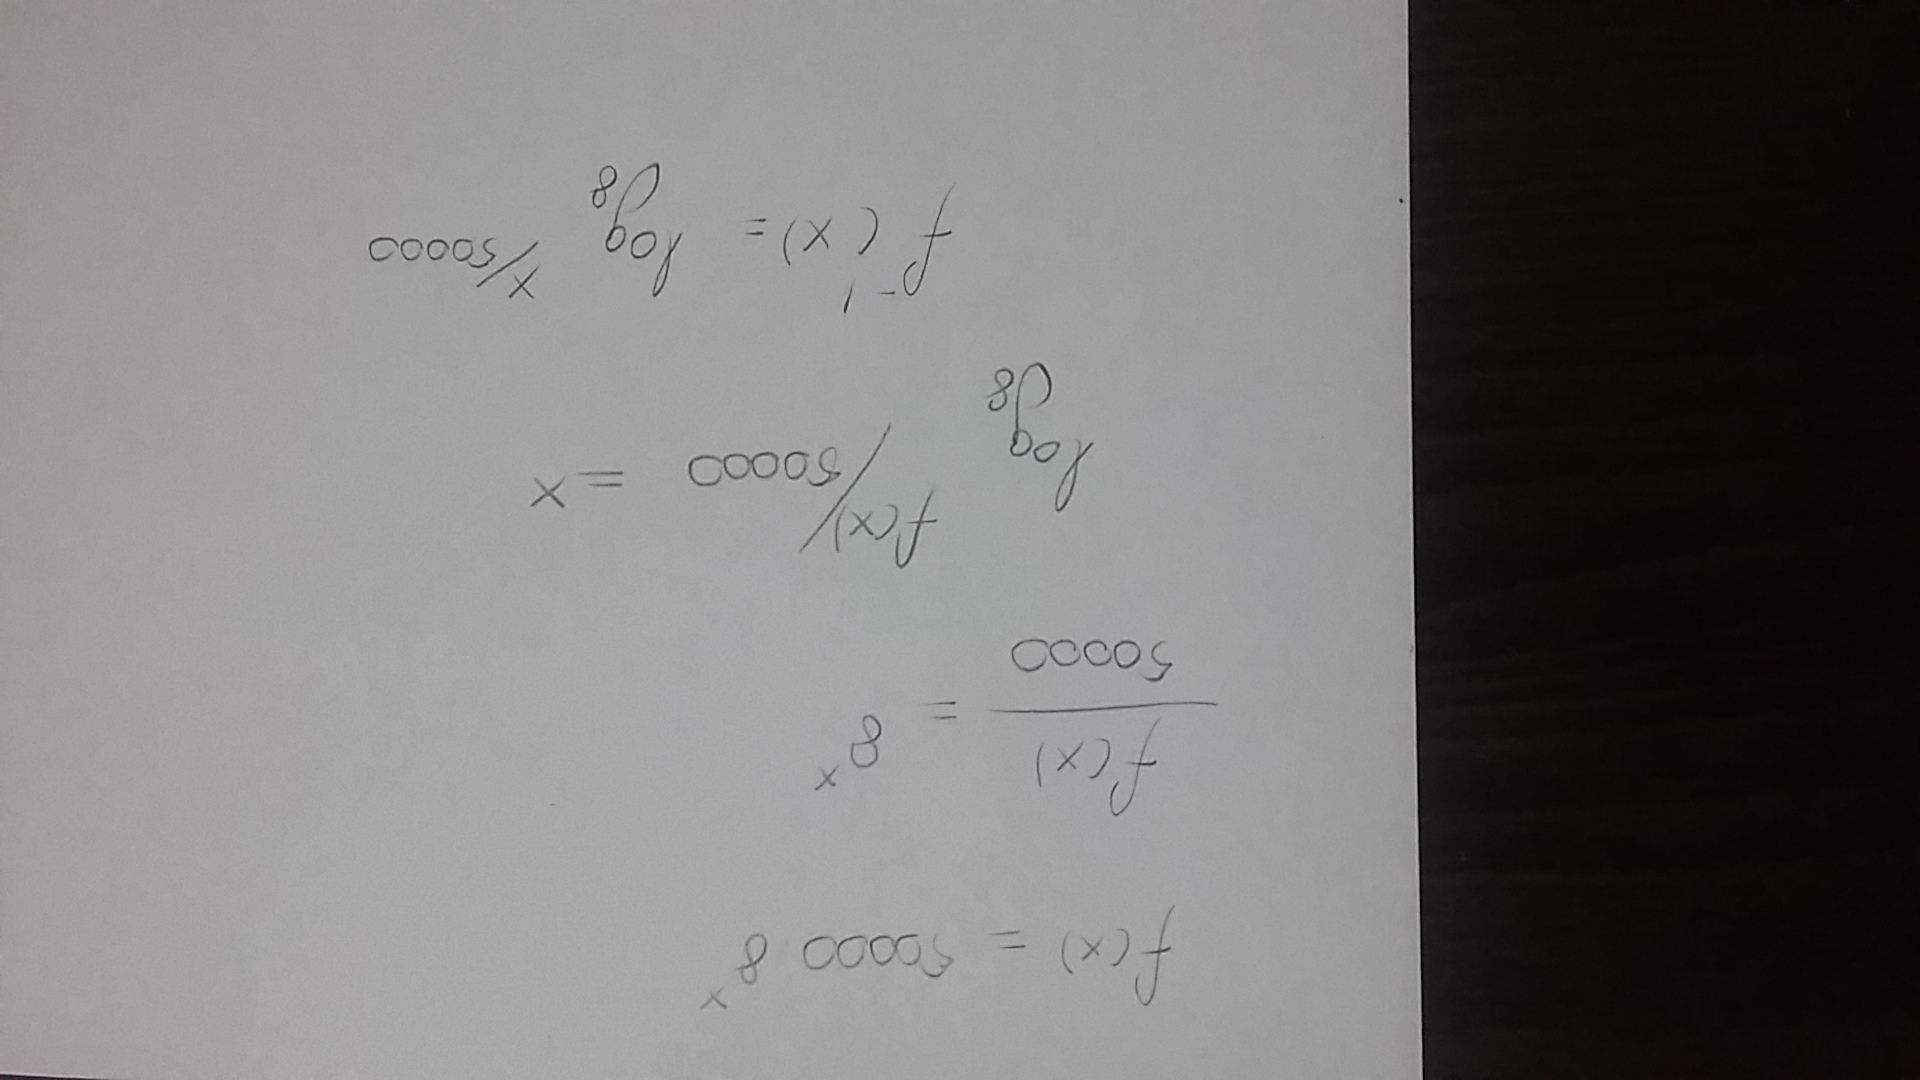 f(x) = 50000 8^x
f(x)/50000 = 8^x
log_8 f(x)/50000 = x
f^-1(x) = log_8 x/50000